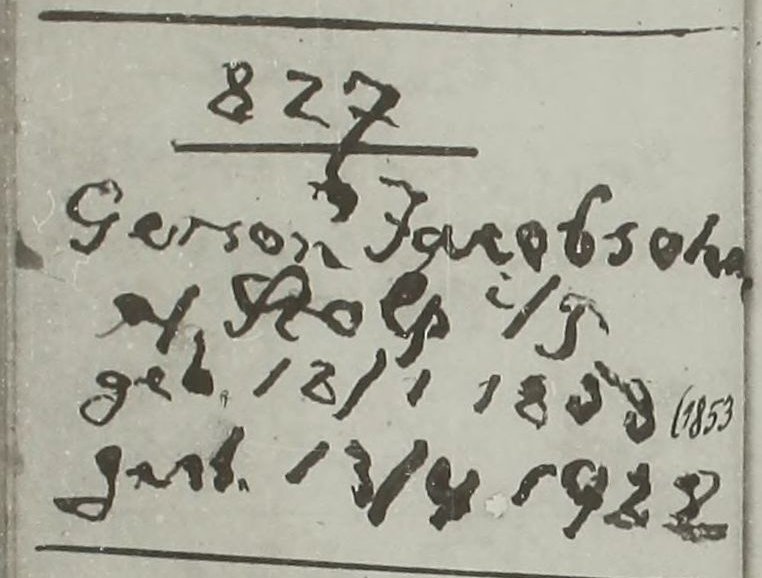 827
Gerson Jacobsohn
a/ Stolp i/P
geb. 18/1 1853 (1853
gest. 13/4 1922